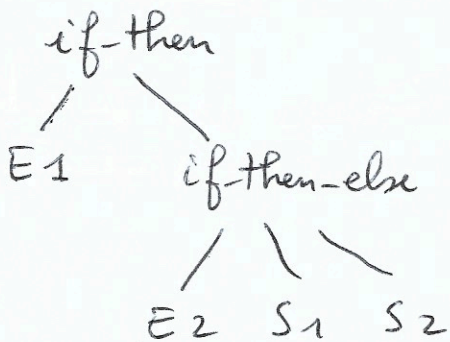 if-then
E1 if-then-else
E2 S1 S2